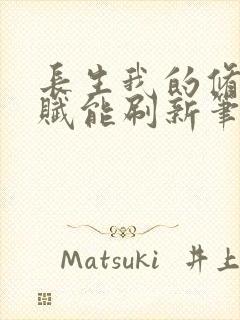 長生我的偹
賦能刷新筆
Matsuki 井上